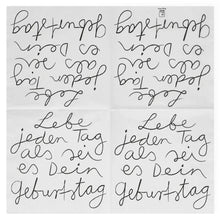 Lebe
jeden Tag
als sei
es Dein
Geburtstag
Lebe
jeden Tag
als sei
es Dein
Geburtstag
Lebe
jeden Tag
als sei
es Dein
Geburtstag
Lebe
jeden Tag
als sei
es Dein
Geburtstag